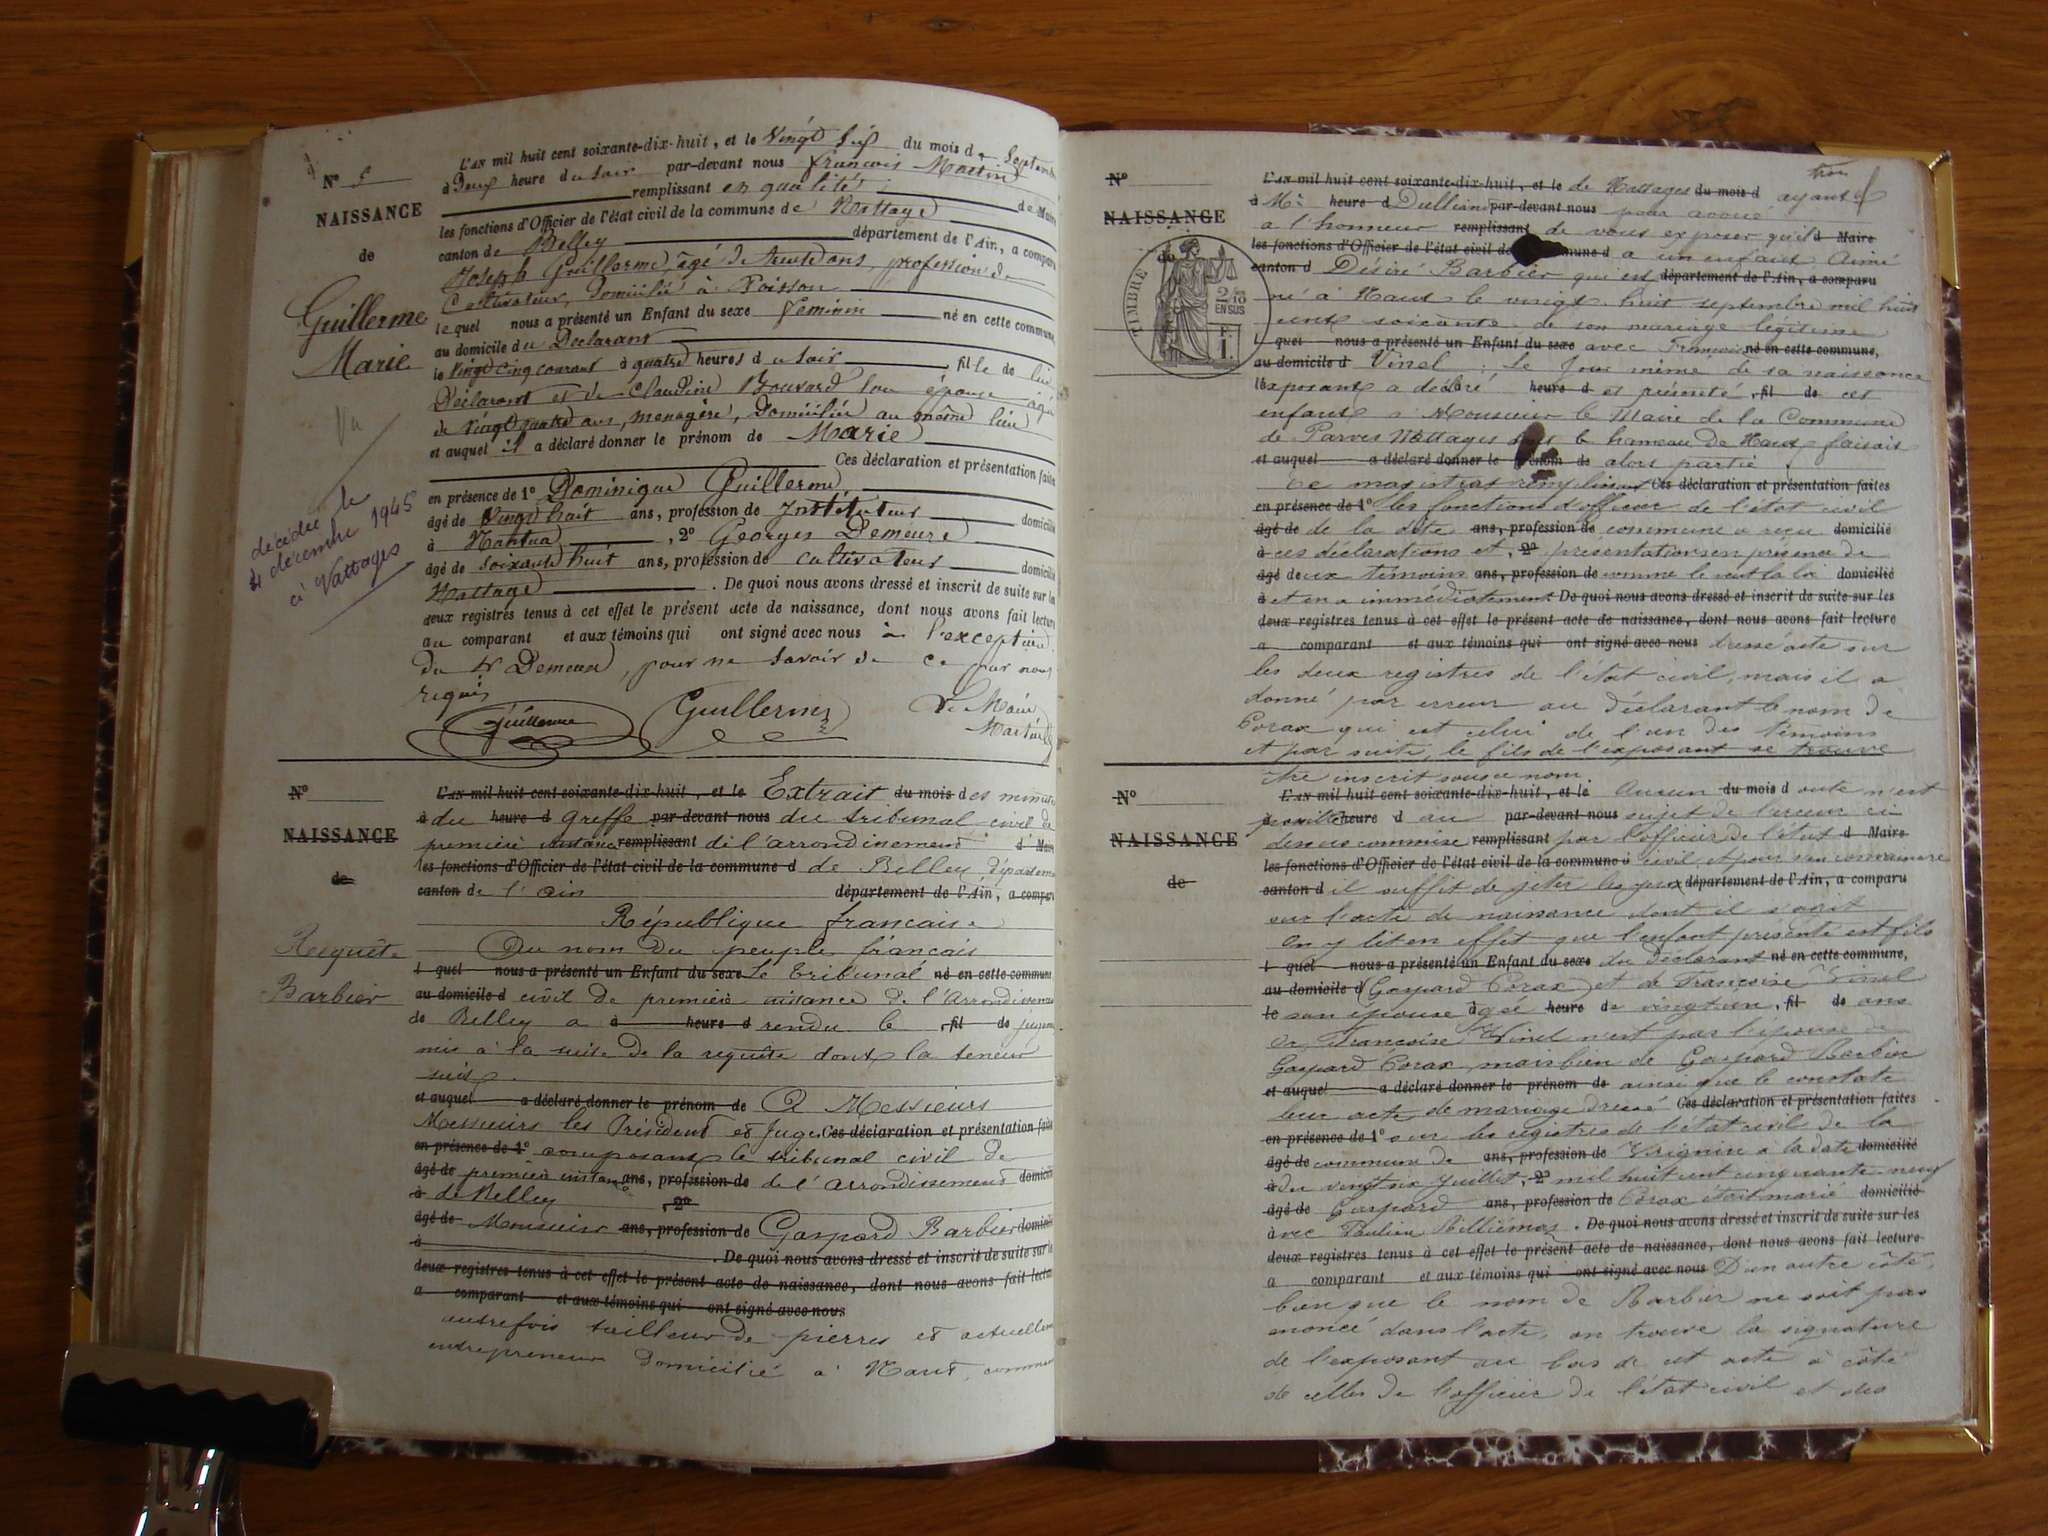 Nº 5
NAISSANCE
de
Guillerme
Marie
Vu
décédée le
4 décembre 1945
à Nattages
L'AN mil huit cent soixante-dix-huit, et le Vingt six du mois de Septembre
à Deux heure du soir par-devant nous françois Martin
remplissant en qualité de Maire
les fonctions d'Officier de l'état civil de la commune de Nattage
canton de Belley département de l'Ain, a comparu
Joseph Guillerme, âgé de trente ans, profession de
Cultivateur, domicilié à Poisson
le quel nous a présenté un Enfant du sexe féminin né en cette commune,
au domicile du Déclarant
le Vingt cinq courant à quatre heures du soir fille de lui
Déclarant et de Claudine Bouvard son épouse âgée
de vingt quatre ans, menagère, domiciliée au même lieu
et auquel il a déclaré donner le prénom de Marie
Ces déclaration et présentation faites
en présence de 1º Dominique Guillerme
âgé de Vingt huit ans, profession de Instituteur domicilié
à Nantua, 2º Georges Demeure
âgé de soixante huit ans, profession de cultivateur domicilié
Nattage. De quoi nous avons dressé et inscrit de suite sur les
deux registres tenus à cet effet le présent acte de naissance, dont nous avons fait lecture
au comparant et aux témoins qui ont signé avec nous à l'exception
du Sr Demeure, pour ne savoir de ce par nous
requis
Guillerme Guillerme Le Maire
Martin
Nº
NAISSANCE
de
Requête
Barbier
L'AN mil huit cent soixante-dix-huit, et le Extrait du mois des minutes
à du heure d greffe par-devant nous du tribunal civil de
première instance remplissant de l'arrondissement d Maire
les fonctions d'Officier de l'état civil de la commune d de Belley département
canton de l'ain département de l'Ain, a comparu
République française
Au nom du peuple français
l quel nous a présenté un Enfant du sexe Le tribunal né en cette commune,
au domicile d civil de première instance de l'Arrondissement
de Belley a à heure d rendu le fil de jugement
mis à la suite de la requête dont la teneur
suit
et auquel a déclaré donner le prénom de A Messieurs
Messieurs les Président et Juges Ces déclaration et présentation faites
en présence de 1º composant le tribunal civil de
âgé de première instance ans, profession de de l'arrondissement domicilié
à de Belley 2º
âgé de Monsieur ans, profession de Gaspard Barbier domicilié
à . De quoi nous avons dressé et inscrit de suite sur les
deux registres tenus à cet effet le présent acte de naissance, dont nous avons fait lecture
a comparant et aux témoins qui ont signé avec nous
autrefois tailleur de pierres et actuellement
entrepreneur domicilié à Nant, commune
Nº
NAISSANCE
de
TIMBRE
2/10
EN SUS
F.
1.
L'AN mil huit cent soixante-dix-huit, et le de Nattages du mois d ayant
à Me heure d Dullians par-devant nous pour avoué
a l'honneur remplissant de vous exposer qu'il d Maire
les fonctions d'Officier de l'état civil de la commune d a un enfant Aimé
canton d Désiré Barbier qui est département de l'Ain, a comparu
né à Nant le vingt huit septembre mil huit
cent soixante de son mariage légitime
l quel nous a présenté un Enfant du sexe avec Françoise né en cette commune,
au domicile d Vinel. Le jour même de sa naissance
l'exposant a déclaré heure d et présenté, fil de cet
enfant à Monsieur le Maire de la Commune
de Parves Nattages dont le hameau de Nant faisait
et auquel a déclaré donner le prénom de alors partie
Ce magistrat remplissant Ces déclaration et présentation faites
en présence de 1º les fonctions d'officier de l'état civil
âgé de de la dite ans, profession de commune a reçu domicilié
à ces déclarations et, 2º présentations en présence de
âgé deux témoins ans, profession de comme le veut la loi domicilié
à et en a immédiatement De quoi nous avons dressé et inscrit de suite sur les
deux registres tenus à cet effet le présent acte de naissance, dont nous avons fait lecture
a comparant et aux témoins qui ont signé avec nous dressé acte sur
les deux registres de l'état civil, mais il a
donné par erreur au déclarant le nom de
Corax qui est celui de l'un des témoins
et par suite, le fils de l'exposant se trouve
être inscrit sous ce nom.
Nº
NAISSANCE
de
L'AN mil huit cent soixante-dix-huit, et le Aucun du mois d doute n'est
possible heure d au par-devant nous sujet de l'erreur ci
dessus commise remplissant par l'officier de l'état d Maire
les fonctions d'Officier de l'état civil de la commune d civil, et pour s'en convaincre
canton d il suffit de jeter les yeux département de l'Ain, a comparu
sur l'acte de naissance dont il s'agit
On y lit en effet que l'enfant présenté est fils
l quel nous a présenté un Enfant du sexe du déclarant né en cette commune,
au domicile d (Gaspard Corax) et de Françoise Vinel
le son épouse âgée heure de vingt un, fil de ans
Or, Françoise Vinel n'est pas l'épouse de
Gaspard Corax, mais bien de Gaspard Barbier
et auquel a déclaré donner le prénom de ainsi que le constate
leur acte de mariage dressé Ces déclaration et présentation faites
en présence de 1º sur les registres de l'état civil de la
âgé de commune de ans, profession de Virignin à la date domicilié
à du vingt six juillet, 2º mil huit cent cinquante neuf
âgé de Gaspard ans, profession de Corax était marié domicilié
à avec Pauline . De quoi nous avons dressé et inscrit de suite sur les
deux registres tenus à cet effet le présent acte de naissance, dont nous avons fait lecture
a comparant et aux témoins qui ont signé avec nous D'un autre côté,
bien que le nom de Barbier ne soit pas
énoncé dans l'acte, on trouve la signature
de l'exposant au bas de cet acte à côté
de celles de l'officier de l'état civil et des